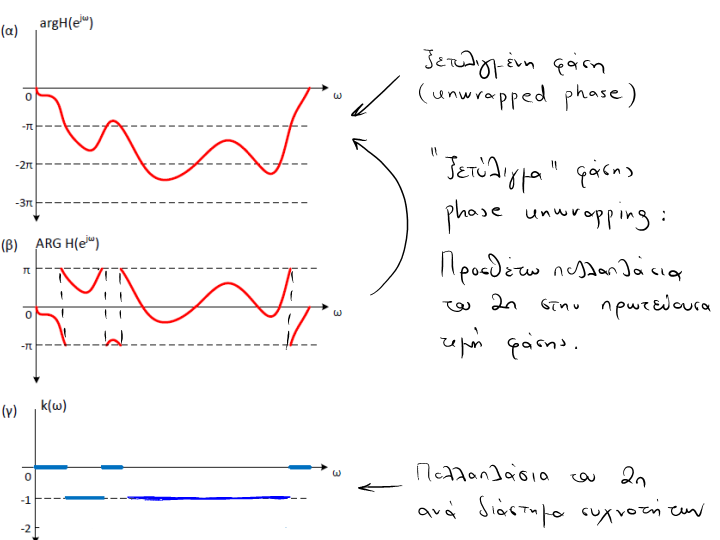 (α)
argH(e^jω)
0
-π
-2π
-3π
ω
Ξετυλιγμένη φάση
(unwrapped phase)
"Ξετύλιγμα" φάσης
phase unwrapping:
Προσθέτω πολλαπλάσια
του 2π στην πρωτεύουσα
τιμή φάσης.
(β)
ARG H(e^jω)
π
0
-π
ω
(γ)
k(ω)
0
-1
-2
ω
Πολλαπλάσια του 2π
ανά διάστημα συχνοτήτων